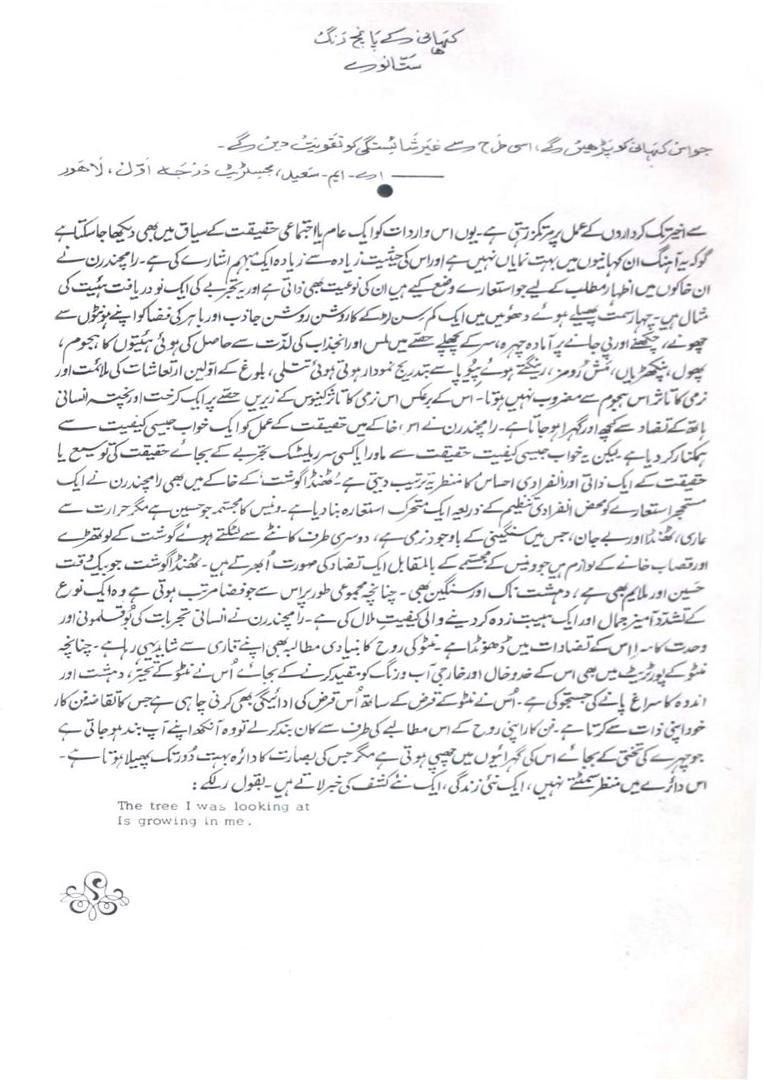 کہانی کے پانچ رنگ
ستانوے
جو اس کہانی کو پڑھیں گے، اسی طرح سے غیر شائستگی کو تقویت دیں گے۔
—— اے۔ ایم۔ سعید، مجسٹریٹ درجہ اوّل، لاہور
سے اخیر تک کرداروں کے عمل پر مرتکز رہتی ہے۔ یوں اس واردات کو ایک عام یا اجتماعی حقیقت کے سیاق میں بھی دیکھا جا سکتا ہے
گو کہ یہ آہنگ ان کہانیوں میں بہت نمایاں نہیں ہے اور اس کی حیثیت زیادہ سے زیادہ ایک مبہم اشارے کی ہے۔ رامچندرن نے
ان خاکوں میں اظہارِ مطلب کے لیے جو استعارے وضع کیے ہیں ان کی نوعیت بھی ذاتی ہے اور یہ تجربے کی ایک نو دریافت ہئیت کی
مثال ہیں۔ چہار سمت پھیلے ہوئے دھوئیں میں ایک کم سن لڑکے کا روشن روشن جاذب اور باہر کی فضا کو اپنے ہونٹوں سے
چھونے، چکھنے اور پی جانے پر آمادہ چہرہ، سر کے پچھلے حصّے میں لمس اور انجذاب کی لذّت سے حاصل کی ہوئی ہئیتوں کا ہجوم،
پھول، پنکھڑیاں، مَش رُومز، رینگتے ہوئے پیُوپا سے بتدریج نمودار ہوتی ہوئی تتلی، بلوغ کے اوّلین ارتعاشات کی ملائمت اور
نرمی کا تاثر اس ہجوم سے مضروب نہیں ہوتا۔ اس کے برعکس اس نرمی کا تاثر کینوس کے زیریں حصّے پر ایک کرخت اور پختہ انسانی
ہاتھ کے تضاد سے کچھ اور گہرا ہو جاتا ہے۔ رامچندرن نے اس خاکے میں حقیقت کے عمل کو ایک خواب جیسی کیفیت سے
ہمکنار کر دیا ہے لیکن یہ خواب جیسی کیفیت حقیقت سے ماورا یا کسی سرریلسٹک تجربے کے بجائے حقیقت کی توسیع یا
حقیقت کے ایک ذاتی اور انفرادی احساس کا منظریہ ترتیب دیتی ہے۔ ’ٹھنڈا گوشت‘ کے خاکے میں بھی رامچندرن نے ایک
متحجر استعارے کو محض انفرادی تنظیم کے ذریعہ ایک متحرک استعارہ بنا دیا ہے۔ وینس کا مجسّمہ جو حسین ہے مگر حرارت سے
عاری، ٹھنڈا اور بے جان، جس میں سنگینی کے باوجود نرمی ہے، دوسری طرف کانٹے سے لٹکتے ہوئے گوشت کے لوتھڑے
اور قصاب خانے کے لوازم ہیں جو وینس کے مجسمّے کے بالمقابل ایک تضاد کی صورت اُبھرتے ہیں۔ ٹھنڈا گوشت جو بیک وقت
حسین اور ملائم بھی ہے، دہشت ناک اور سنگین بھی۔ چنانچہ مجموعی طور پر اس سے جو فضا مرتب ہوتی ہے وہ ایک نوع
کے تشدّد آمیز جمال اور ایک ہیبت زدہ کر دینے والی کیفیتِ ملال کی ہے۔ رامچندرن نے انسانی تجربات کی بُوقلمونی اور
وحدت کا سرا اس کے تضادات میں ڈھونڈا ہے۔ منٹو کی روح کا بنیادی مطالبہ بھی اپنے قاری سے شاید یہی رہا ہے۔ چنانچہ
منٹو کے پورٹریٹ میں بھی اس کے خدوخال اور خارجی آب و رنگ کو مقید کرنے کے بجائے اُس نے منٹو کے تحیّر، دہشت اور
اندوہ کا سراغ پانے کی جستجو کی ہے۔ اُس نے منٹو کے قرض کے ساتھ اُس قرض کی ادائیگی بھی کرنی چاہی ہے جس کا تقاضہ فن کار
خود اپنی ذات سے کرتا ہے۔ فن کار اپنی روح کے اس مطالبے کی طرف سے کان بند کر لے تو وہ آنکھ اپنے آپ بند ہو جاتی ہے
جو چہرے کی تختی کے بجائے اس کی گہرائیوں میں چھپی ہوتی ہے مگر جس کی بصارت کا دائرہ بہت دُور تک پھیلا ہوتا ہے۔
اس دائرے میں منظر سمٹتے نہیں، ایک نئی زندگی، ایک نئے کشف کی خبر لاتے ہیں۔ بقول رلکے:
The tree I was looking at
Is growing in me.